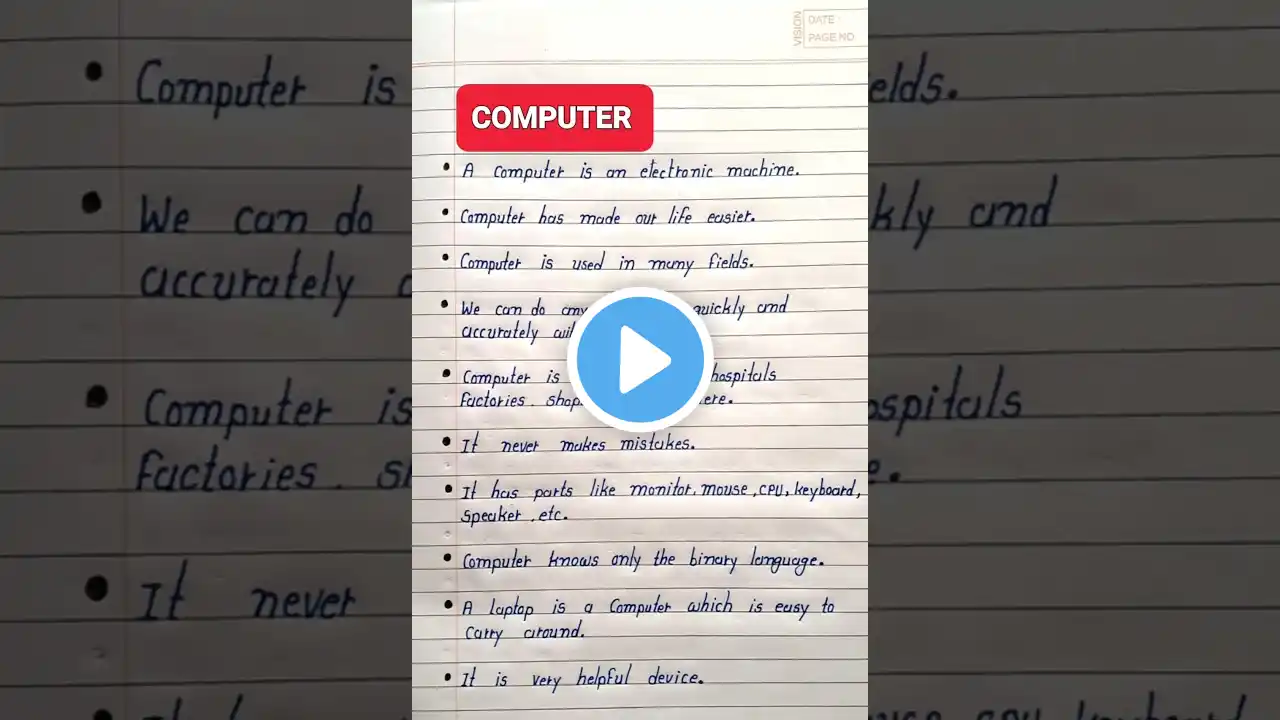 VISION
DATE :
PAGE NO
COMPUTER
• A computer is an electronic machine.
• Computer has made our life easier.
• Computer is used in many fields.
• We can do any quickly and
accurately
• Computer is hospitals
factories. shops ere.
• It never makes mistakes.
• It has parts like monitor, mouse, CPU, keyboard,
speaker, etc.
• Computer knows only the binary language.
• A laptop is a Computer which is easy to
carry around.
• It is very helpful device.
Computer is
elds.
We can do
kly and
accurately
Computer is
ospitals
factories.
e.
It never